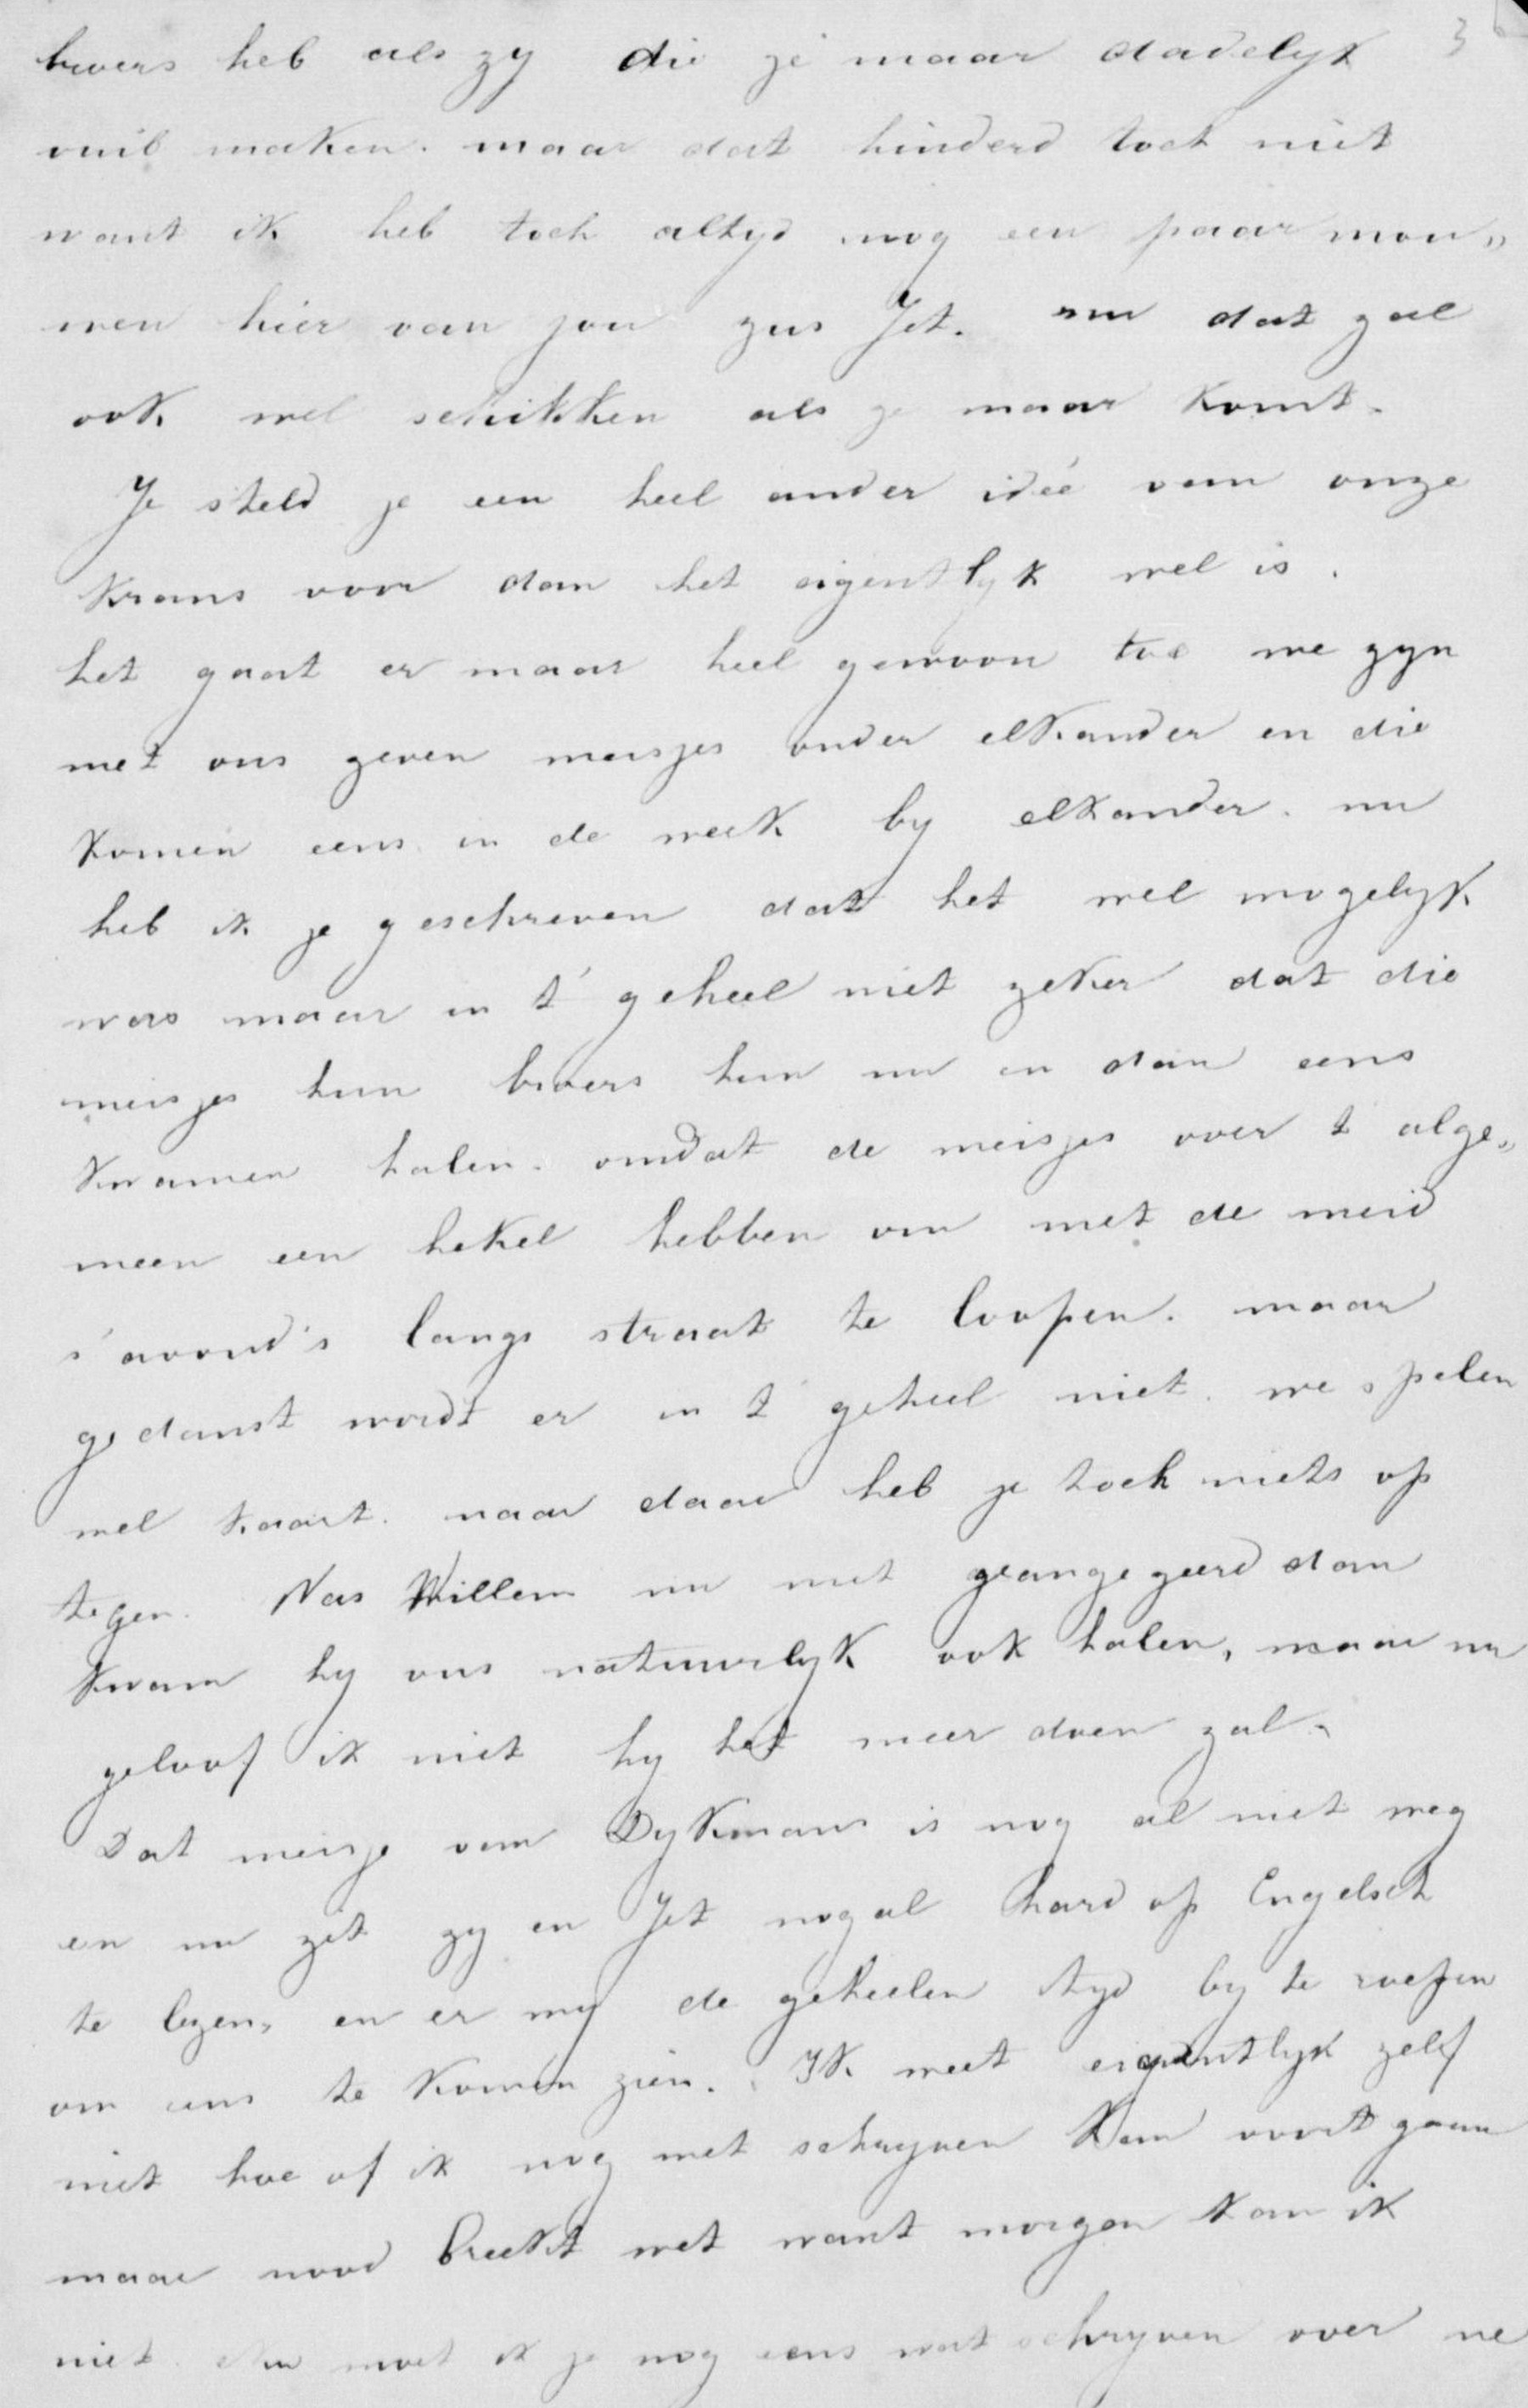 broers heb als zy die ze maar dadelyk 3
vuil maken. maar dat hinderd toch niet
want ik heb toch altyd nog een paar mou„
wen hier van jou zus Jet. nu dat zal
ook wel schikken als je maar komt.
Je steld je een heel ander idée van onze
Krans voor dan het eigentlyk wel is.
het gaat er maar heel gewoon toe we zyn
met ons zeven meisjes onder elkander en die
komen eens in de week by elkander. nu
heb ik je geschreven dat het wel mogelyk
was maar in t' geheel niet zeker dat die
meisjes hun broers hun nu en dan eens
kwamen halen. omdat de meisjes over t alge„
meen een hekel hebben om met de meid
s'avond's langs straat te loopen. maar
gedanst wordt er in t' geheel niet. we spelen
wel kaart. maar daar heb je toch niets op
tegen. Was Willem nu niet geangageerd dan
kwam hy ons natuurlyk ook halen, maar nu
geloof ik niet hy het meer doen zal.
Dat meisje van Dykmans is nog al niet weg
en nu zit zy en Jet nog al hard op Engelsch
te lezen, en er my de geheelen tyd by te roepen
om eens te komen zien. Ik weet eigentlyk zelf
niet hoe of ik nog met schryven kan voort gaan
maar nood breekt wet want morgen kan ik
niet. Nu moet ik je nog eens wat schryven over me